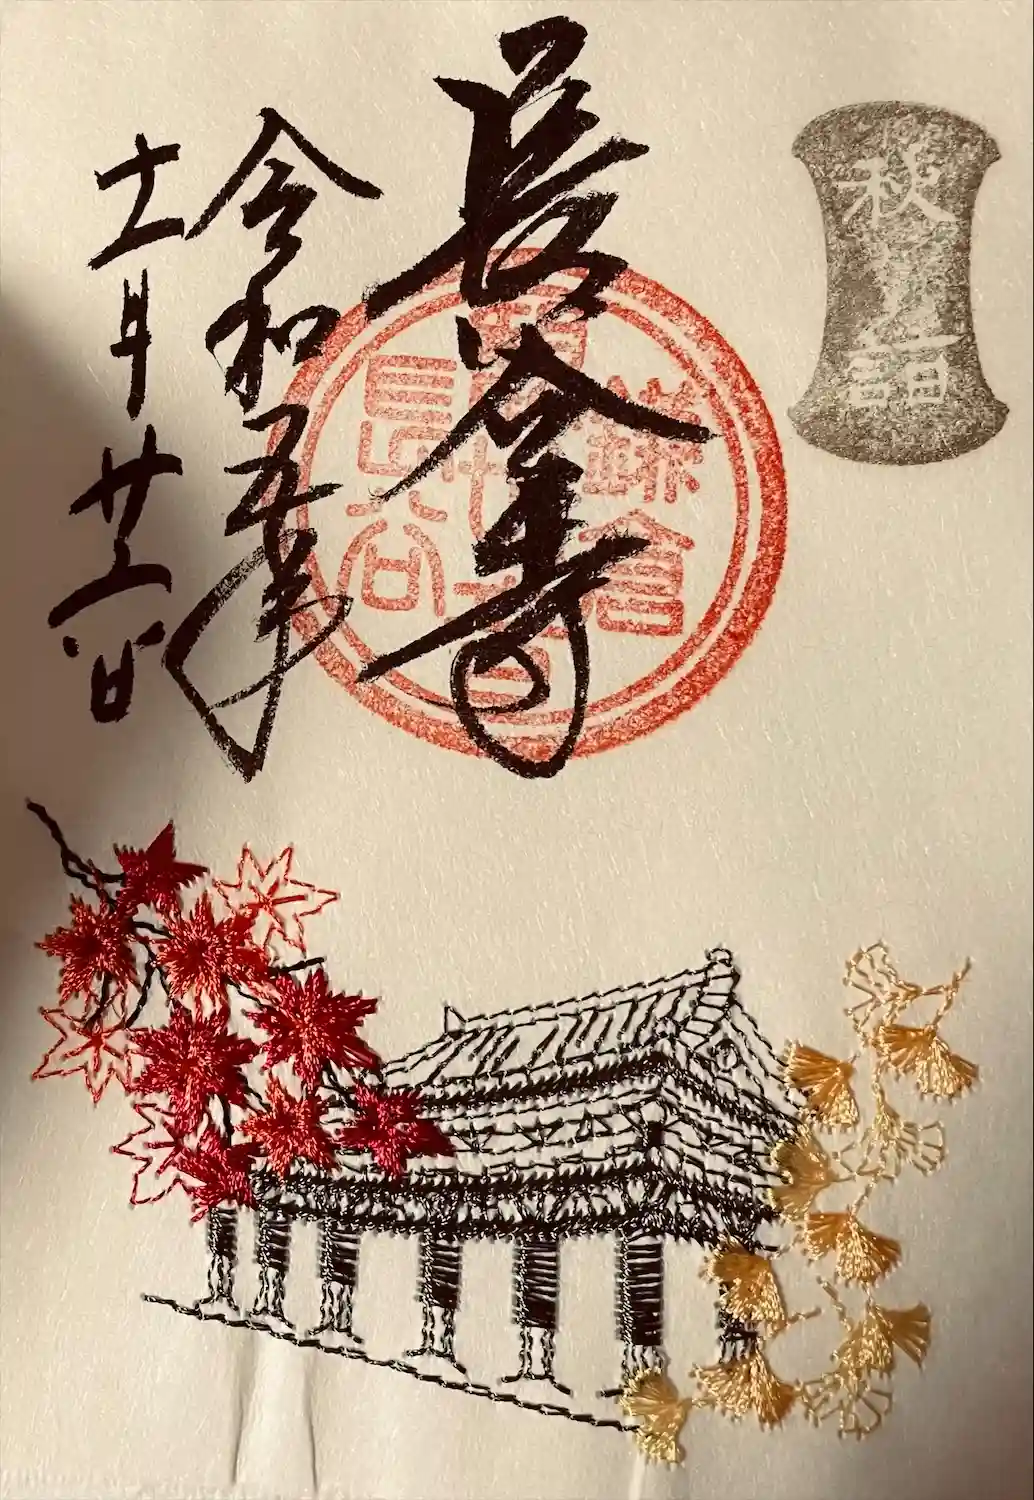 秋詣
長谷寺
鎌倉
長谷
令和五年
十一月廿二日